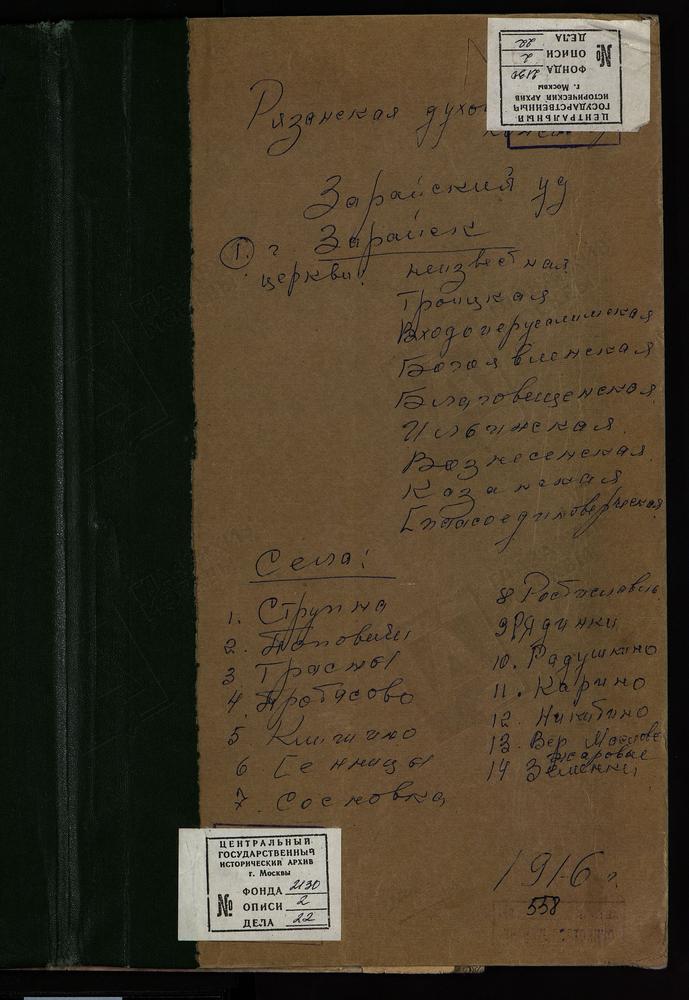 ЦЕНТРАЛЬНЫЙ
ГОСУДАРСТВЕННЫЙ
ИСТОРИЧЕСКИЙ АРХИВ
г. Москвы
№ ФОНДА 2130
ОПИСИ 2
ДЕЛА 22
Рязанская духо
Зарайский уд
1. г. Зарайск
церкви: неизвестная
Троицкая
Входоиерусалимская
Богоявленская
Благовещенская
Ильинская
Вознесенская
Казанская
Спасоединоверческая
Села:
1. Струпна
2. Поповичи
3 Трасны
4 Протасово
5 Кличино
6 Сенницы
7. Сосновка
8 Ростиславль
9 Рядинки
10. Радушкино
11. Карино
12. Никитино
13. Вер. Маслово
жаровые
14 Земенки
1916 г.
558
ЦЕНТРАЛЬНЫЙ
ГОСУДАРСТВЕННЫЙ
ИСТОРИЧЕСКИЙ АРХИВ
г. Москвы
№ ФОНДА 2130
ОПИСИ 2
ДЕЛА 22